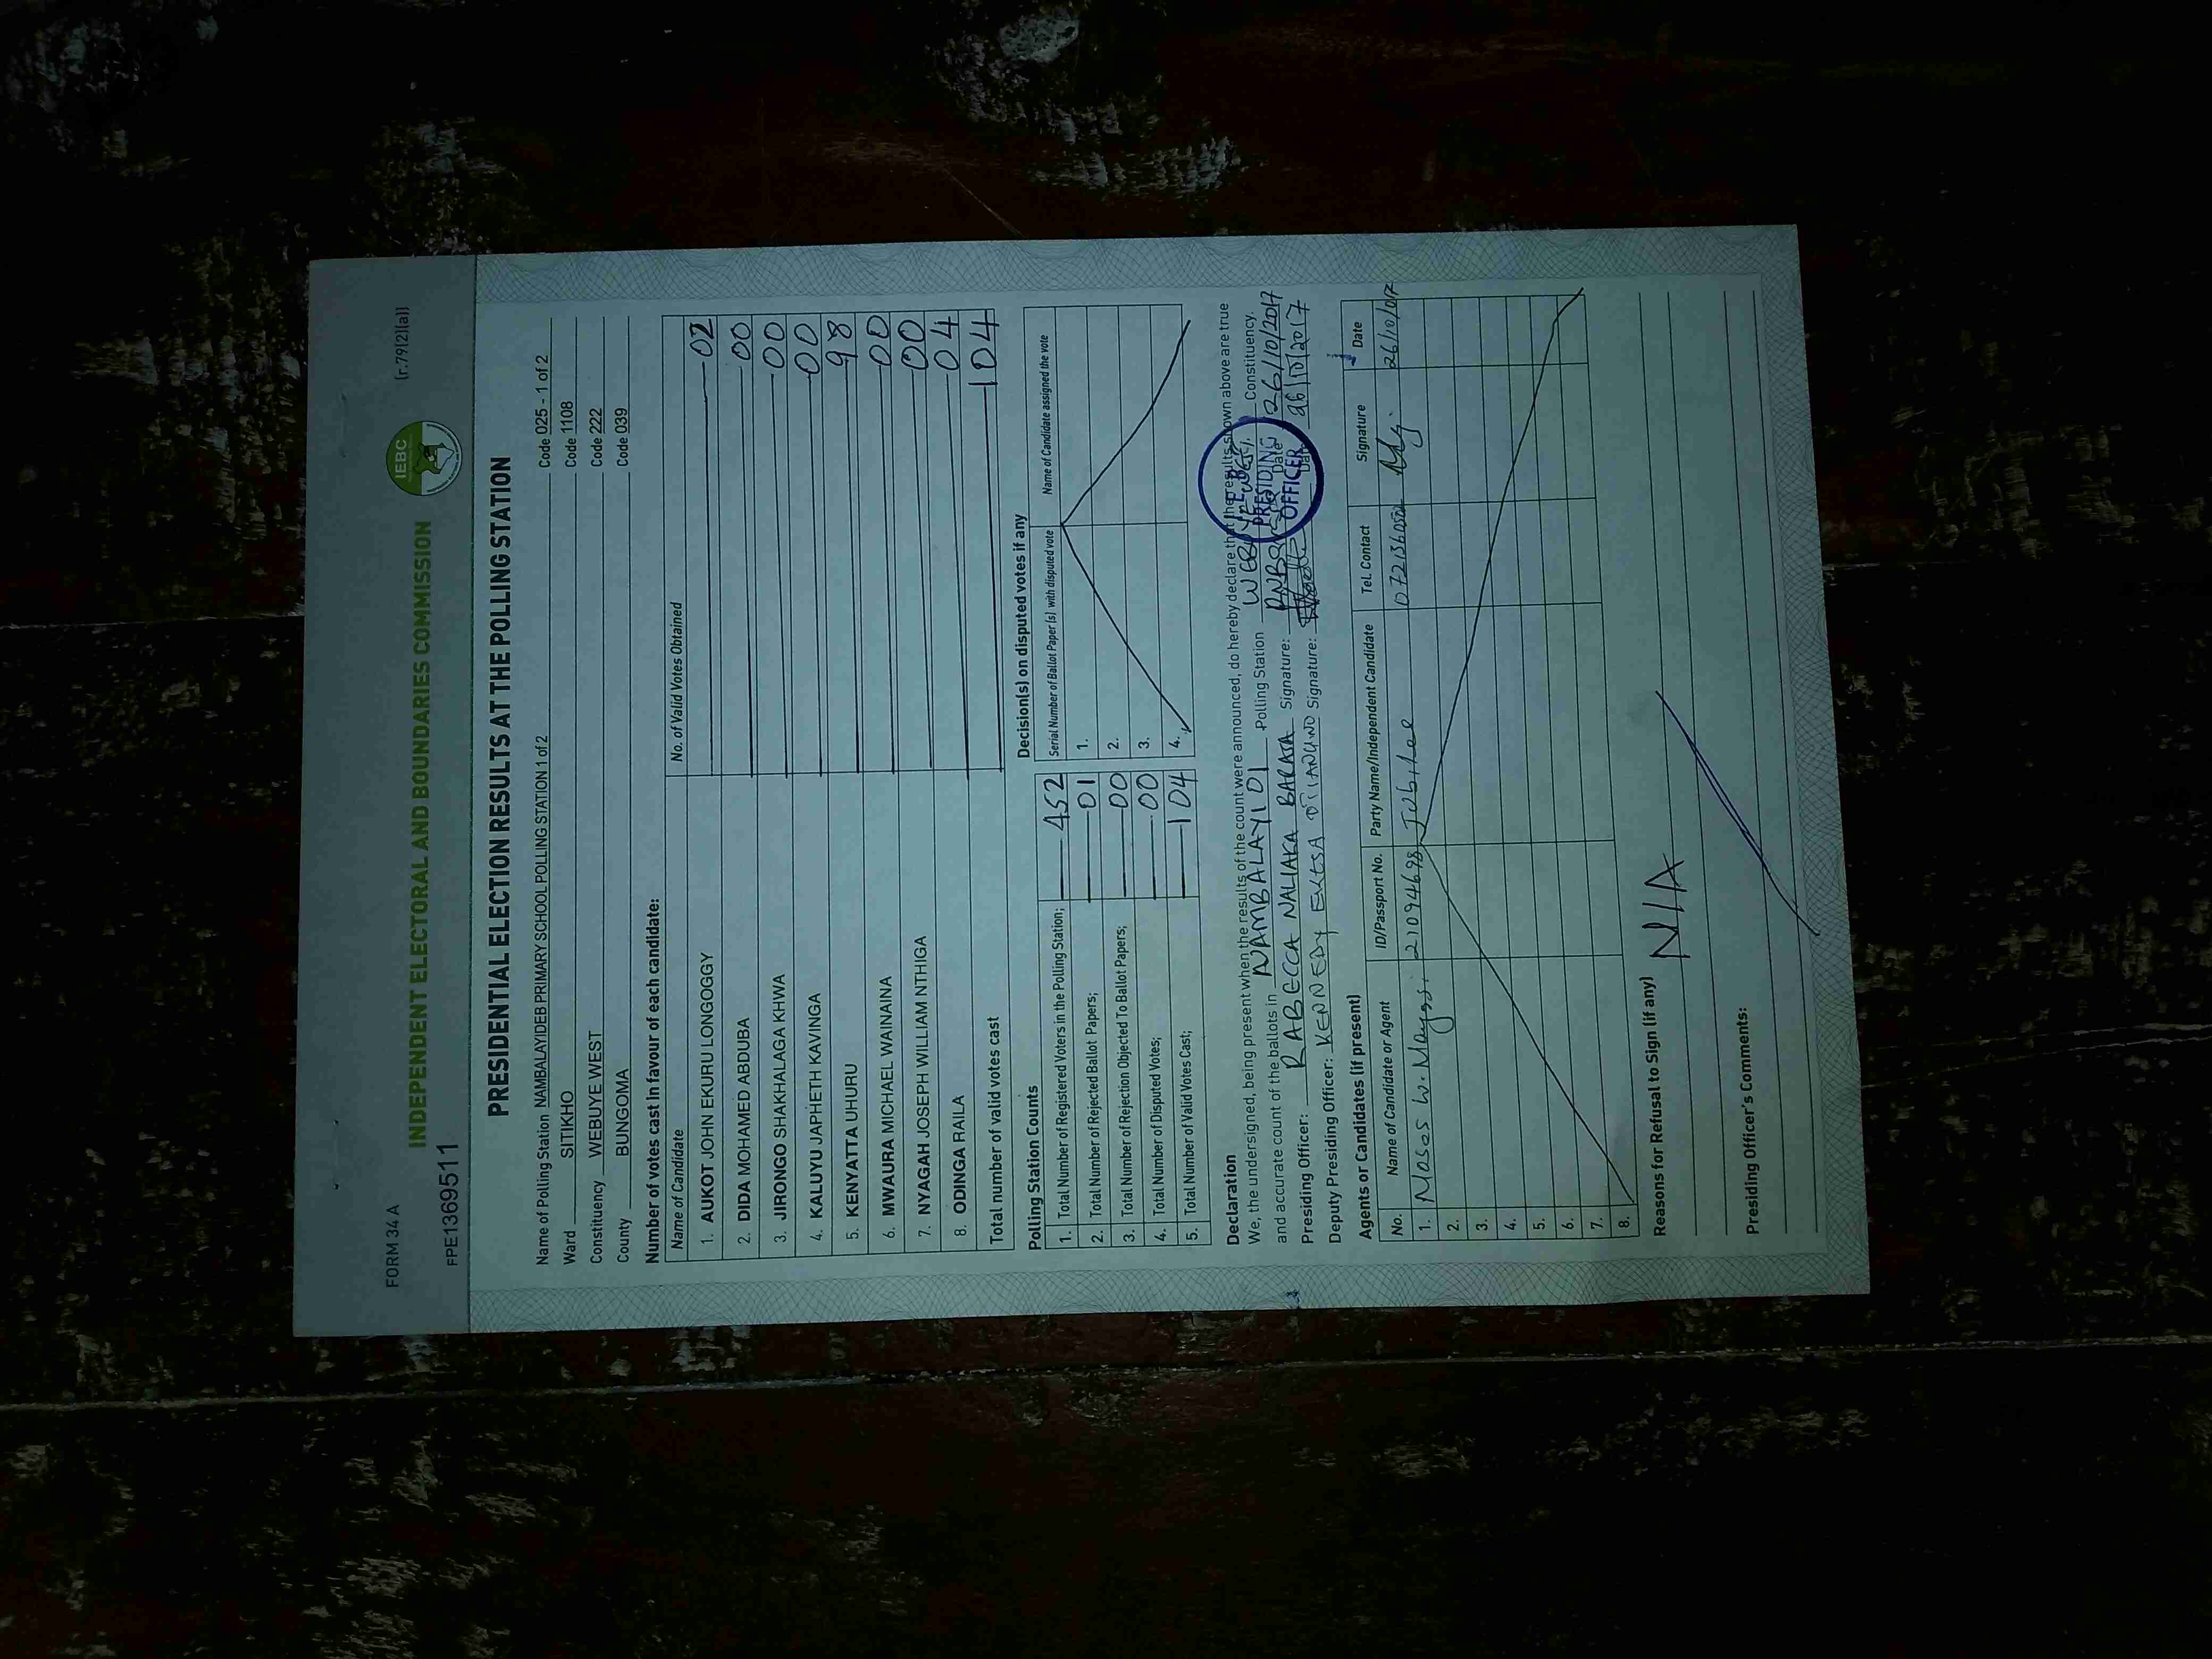 FORM 34 A
(r.79(2)(a))
INDEPENDENT ELECTORAL AND BOUNDARIES COMMISSION
IEBC
FPE1369511
PRESIDENTIAL ELECTION RESULTS AT THE POLLING STATION
Name of Polling Station NAMBALAYIDEB PRIMARY SCHOOL POLLING STATION 1 of 2 Code 025 - 1 of 2
Ward SITIKHO Code 1108
Constituency WEBUYE WEST Code 222
County BUNGOMA Code 039
Number of votes cast in favour of each candidate:
Name of Candidate No. of Valid Votes Obtained
1. AUKOT JOHN EKURU LONGOGGY 02
2. DIDA MOHAMED ABDUBA 00
3. JIRONGO SHAKHALAGA KHWA 00
4. KALUYU JAPHETH KAVINGA 00
5. KENYATTA UHURU 98
6. MWAURA MICHAEL WAINAINA 00
7. NYAGAH JOSEPH WILLIAM NTHIGA 00
8. ODINGA RAILA 04
Total number of valid votes cast 104
Polling Station Counts
1. Total Number of Registered Voters in the Polling Station; 452
2. Total Number of Rejected Ballot Papers; 01
3. Total Number of Rejection Objected To Ballot Papers; 00
4. Total Number of Disputed Votes; 00
5. Total Number of Valid Votes Cast; 104
Decision(s) on disputed votes if any
Serial Number of Ballot Paper (s) with disputed vote Name of Candidate assigned the vote
1.
2.
3.
4.
Declaration
We, the undersigned, being present when the results of the count were announced, do hereby declare that the results shown above are true
and accurate count of the ballots in NAMBALAYI 01 Polling Station Constituency.
Presiding Officer: RABECCA NALIAKA BARASA Signature: Date 26/10/2017
Deputy Presiding Officer: KENNEDY Signature: Date 26/10/2017
PRESIDING
OFFICER
Agents or Candidates (if present)
No. Name of Candidate or Agent ID/Passport No. Party Name/Independent Candidate Tel. Contact Signature Date
1. Moses W. 21094698 Jubilee 26/10/017
2.
3.
4.
5.
6.
7.
8.
Reasons for Refusal to Sign (if any)
N/A
Presiding Officer's Comments: